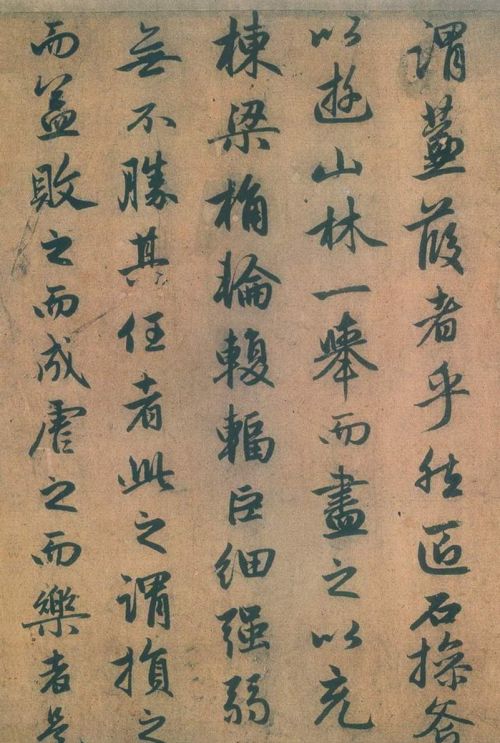 謂蒹葭者乎然匠石操斧
以遊山林一舉而盡之以充
棟梁桷輪輹輻巨細强弱
無不勝其任者此之謂損之
而益敗之而成虐之而樂者是